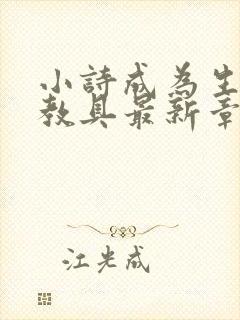 小詩成為生
教具最新章
江光成